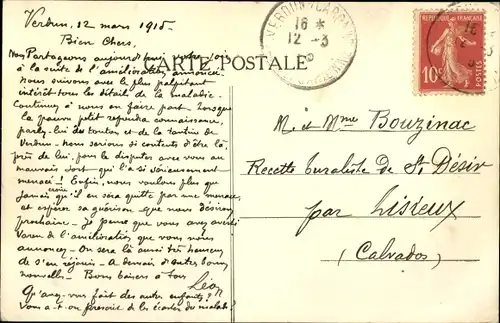 Verdun, 12 mars 1915-
Bien Chers,
Nous Partageons aujourd'hui votre joie
à la suite de l'amélioration annoncée.
Nous suivons avec le plus palpitant
intérêt tous les détail de la maladie.
Continuez à nous en faire part. Lorsque
le pauvre petit reprendra connaissance,
parlez-lui des tonton et de la tantine de
Verdun. Nous serions si contents d'être là,
près de lui, pour le disputer avec vous au
mauvais sort qui l'a si sérieusement
menacé ! Enfin, nous voulons plus que
jamais croire qu'il en sera quitte par une menace
et espérer sa guérison que nous désirons
prochaine. Je pense que vous avez averti
Varen de l'amélioration que vous nous
annoncez. On sera là aussi très heureux
de s'en réjouir. A demain d'autres bonnes
nouvelles. Bons baisers à tous
Léon
Qu'avez-vous fait des autres enfants ?
Vous a-t-on prescrit de les écarter du malade ?
CARTE POSTALE
VERDUN
16 *
12 - 3
REPUBLIQUE FRANÇAISE
10c
POSTES
M. et Mme Bouzinac
Recette buraliste de St Désir
par Lisieux
(Calvados)